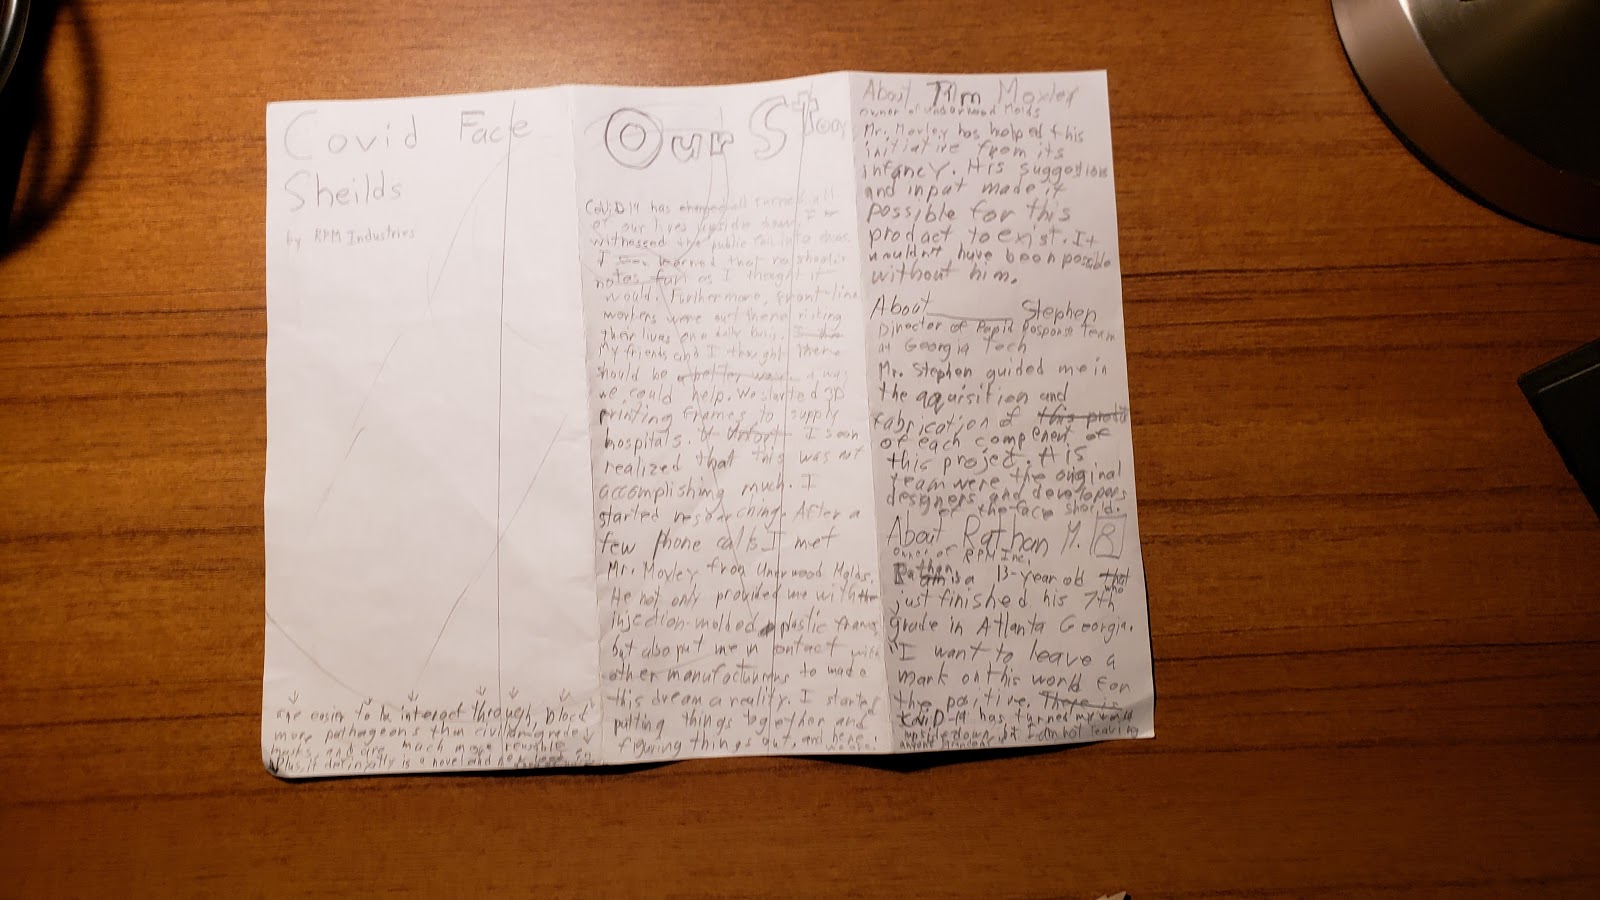 Covid Face
Sheilds
by RPM Industries
are easier to be interact through, block
more pathageons than civilian grade
masks, and are much more reusable
Plus, if definitally is a novel and
Our Stoory
CoViD-19 has changed all turned all
of our lives upside down. I
witnessed the public fall into chaos.
I learned that no school is
not as fun as I thought it
would. Furthermore, front-line
workers were out there risking
their lives on a daily basis. I the
My friends and I thought there
should be a better way a way
we could help. We started 3D
printing frames to supply
hospitals. I soon
realized that this was not
accomplishing much. I
started researching. After a
few phone calls I met
Mr. Moxley from Unerwood Molds.
He not only provided me with the
injection-molded plastic frames
but also put me in contact with
other manufacturers to made
this dream a reality. I started
putting things together and
figuring things out, and here
we are.
About Tim Moxley
owner of Underwood Molds
Mr. Moxley has helped this
initiative from its
infancy. His suggestions
and input made it
possible for this
product to exist. It
wouldn't have been possible
without him.
About ________ Stephen
Director of Rapid Response Team
at Georgia Tech
Mr. Stephen guided me in
the aquisition and
fabrication of this produ
of each component of
this project. His
team were the original
designers and developers
of the face shield.
About Rathan M.
Owner of RPM Inc.
Rathan is a 13-year old that
who
just finished his 7th
grade in Atlanta Georgia.
"I want to leave a
mark on this world for
the positive. There is
CoViD-19 has turned my world
upside down, but I am not leaving